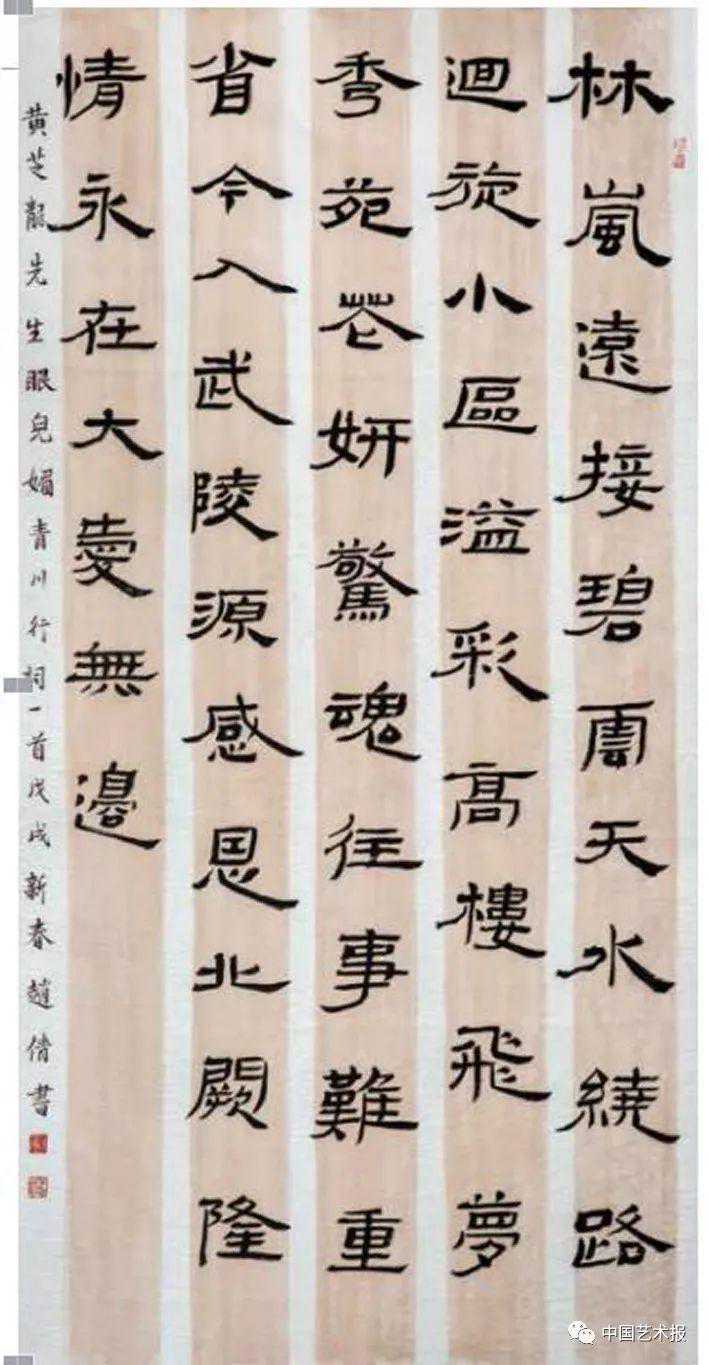 林嵐遠接碧雲天水繞路
迴旋小區溢彩高樓飛夢
秀苑花妍驚魂往事難重
省今入武陵源感恩北闕隆
情永在大愛無邊
黄芝龍先生眼兒媚青川行詞一首戊戌新春趙倩書
中国艺术报